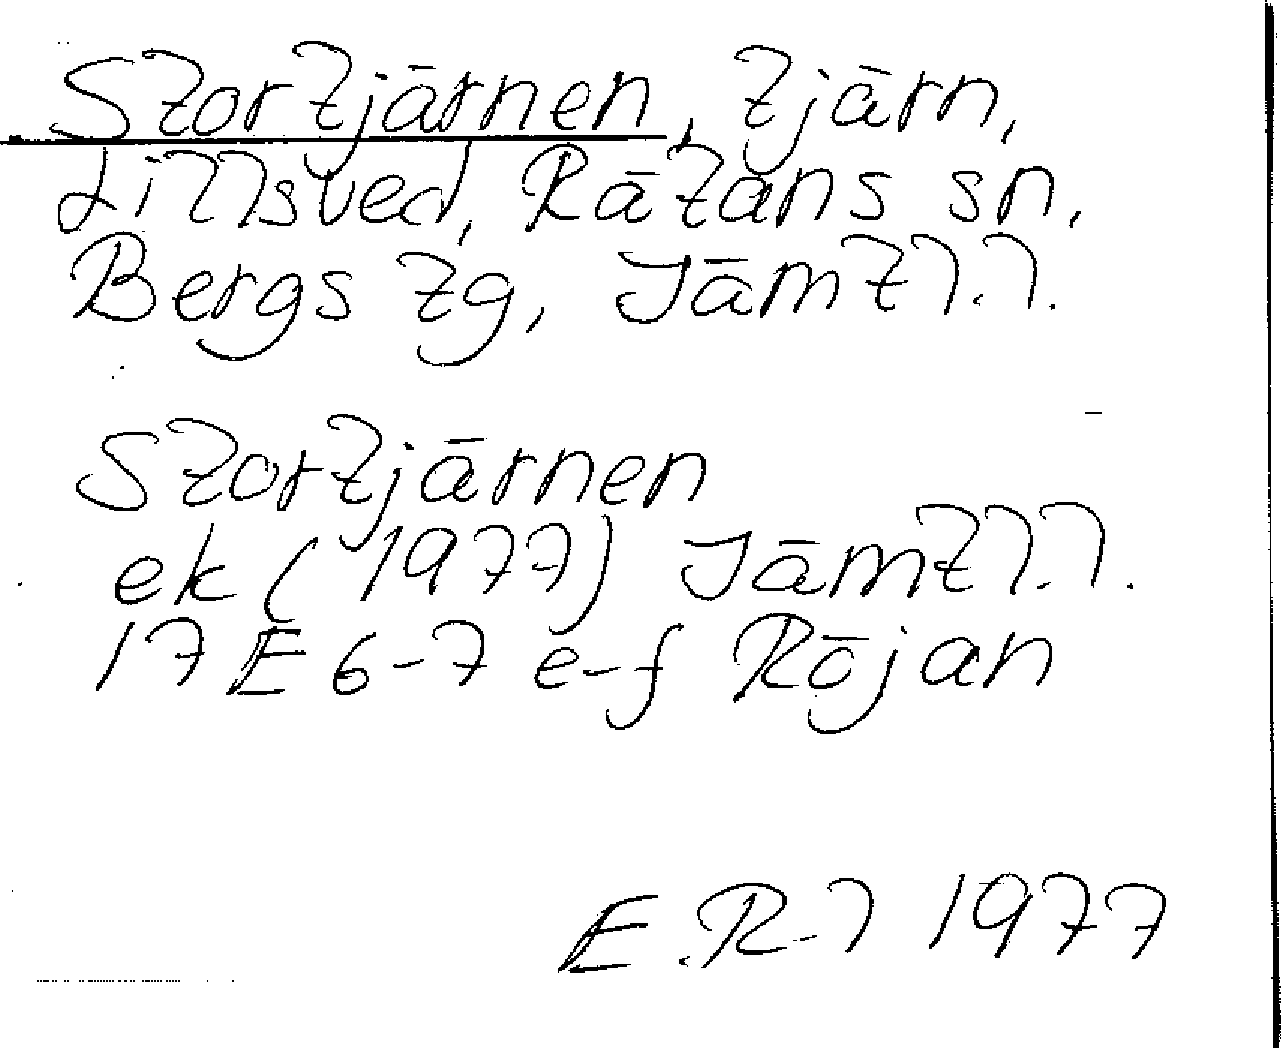 Stortjärnen, tjärn,
Lillsved, Rätans sn,
Bergs tg, Jämtl.l.
Stortjärnen
ek (1977) Jämtl.l.
17 E 6-7 e-f Röjan
E.R-l 1977